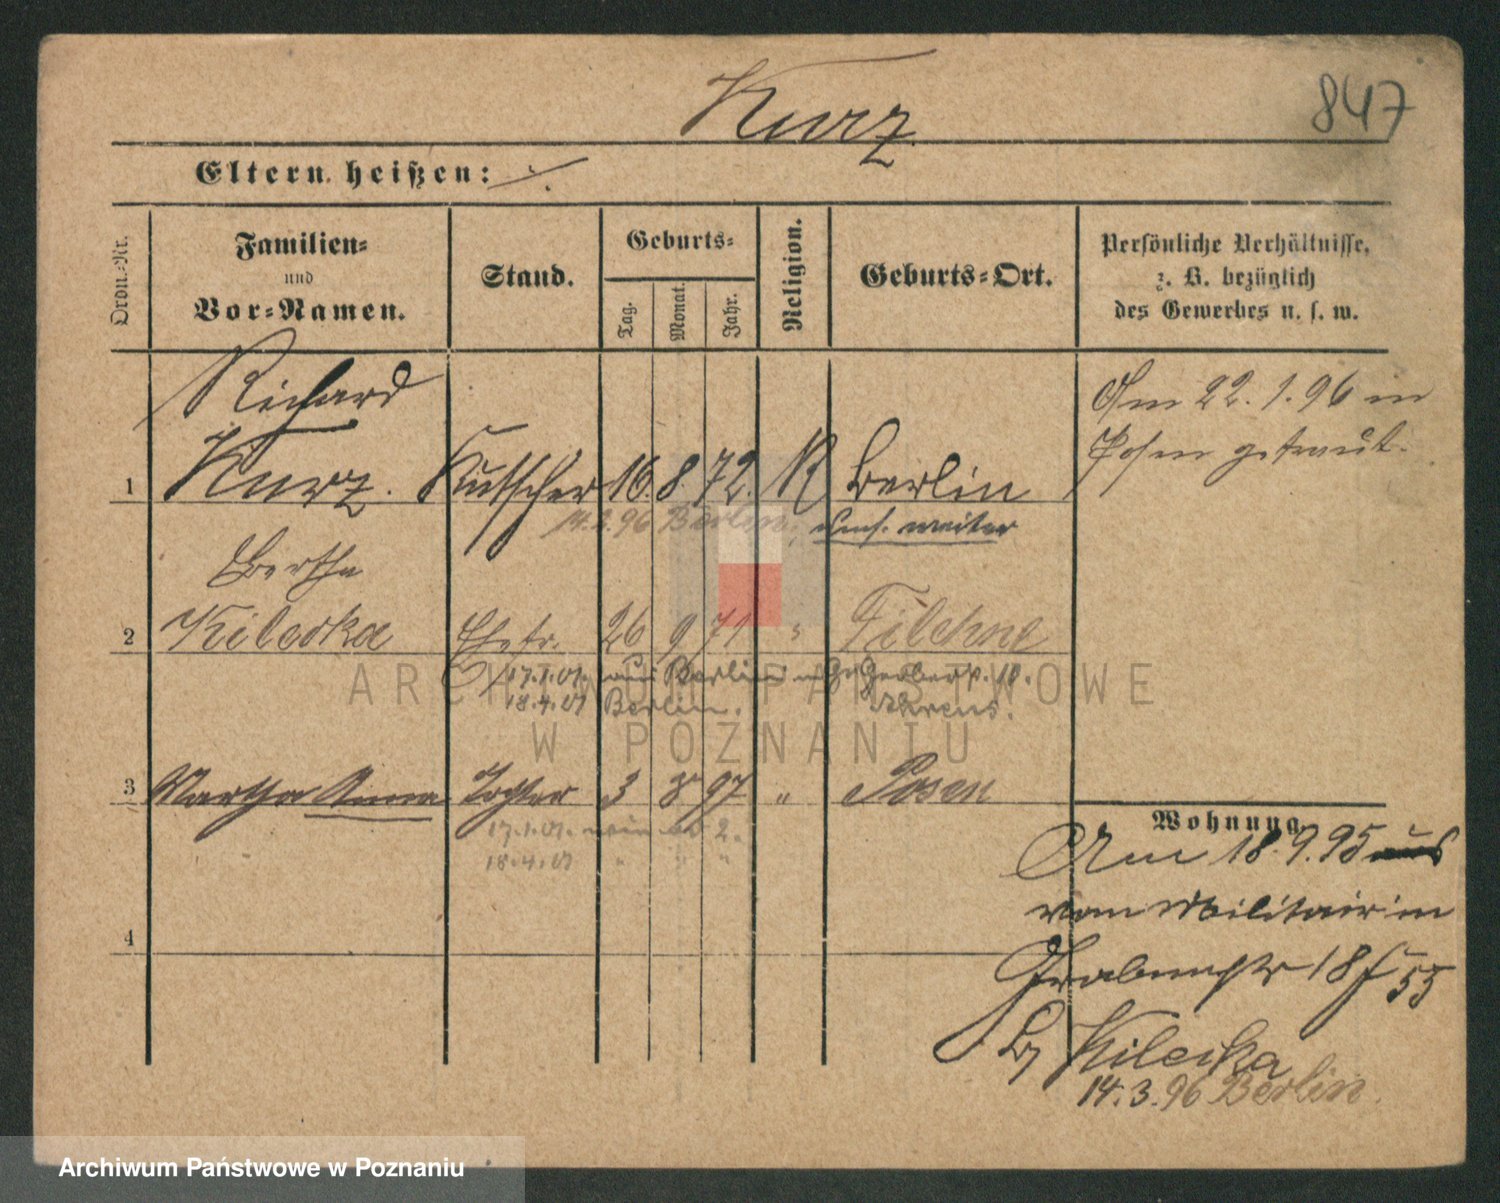 Kurz
847
Eltern heißen: ./.
Ordn.-Nr.
Familien-
und
Vor-Namen.
Stand.
Geburts-
Tag.
Monat.
Jahr.
Religion.
Geburts-Ort.
Persönliche Verhältnisse,
z. B. bezüglich
des Gewerbes u. s. w.
Richard
1 Kurz. Kutscher 16. 8. 72. K Berlin
Am 22. 1. 96 in
Posen getraut.
96 Berlin, weiter
Bertha
2 Kilecka Ehefr. 26 9 71 " Filehne
17.1.01. aus Berlin in Gr Gerberst. 18.
18.4.01 Berlin. Ahrens.
3 Martha Anna Tochter 3 8 97 " Posen
17.1.01. wie 2.
18.4.01 " " "
4
Wohnung
Am 18. 9. 95
vom Militair in
18
b/ Kilecka
14. 3. 96 Berlin.
ARCHIWUM PAŃSTWOWE
W POZNANIU
Archiwum Państwowe w Poznaniu